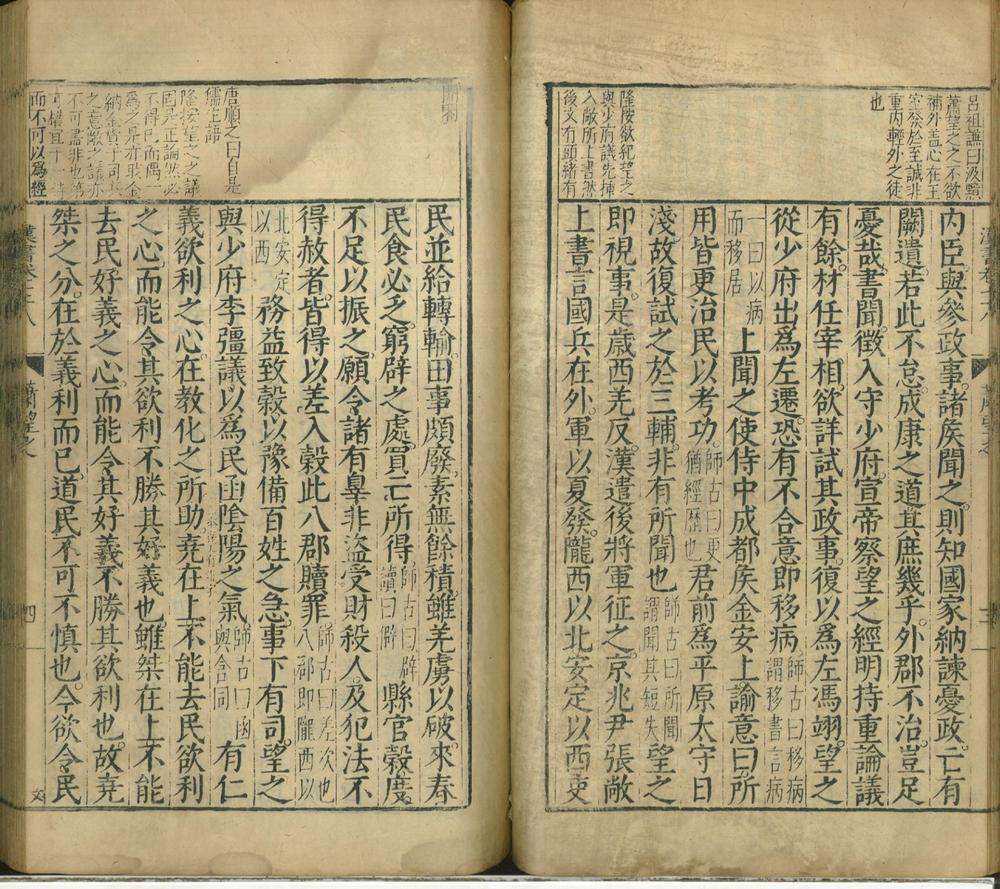 呂祖謙曰汲黯
蕭望之之不欲
補外蓋心在王
室發於至誠非
重內輕外之徒
也
隆按欲紀望之
與少府議先揷
入敞所上書然
後文有頭緒有
內臣與參政事諸矦聞之則知國家納諫憂政亡有
闕遺若此不怠成康之道其庶幾乎外郡不治豈足
憂哉書聞徵入守少府宣帝察望之經明持重論議
有餘材任宰相欲詳試其政事復以爲左馮翊望之
從少府出爲左遷恐有不合意即移病師古曰移病謂移書言病
一曰以病而移居上聞之使侍中成都矦金安上諭意曰所
用皆更治民以考功師古曰更猶經歷也君前爲平原太守日
淺故復試之於三輔非有所聞也師古曰所聞謂聞其短失望之
即視事是歲西羌反漢遣後將軍征之京兆尹張敞
上書言國兵在外軍以夏發隴西以北安定以西吏
唐順之曰自是
儒生語
隆按望之之議
固是正論然必
不得已而偶一
爲之
納
之意敞之議亦
不可盡非也第
可權宜于一時
而不可以爲經
民並給轉輸田事頗廢素無餘積雖羌虜以破來春
民食必乏窮辟之處買亡所得師古曰辟讀曰僻縣官穀度
不足以振之願令諸有辠非盜受財殺人及犯法不
得赦者皆得以差入穀此八郡贖罪師古曰差次也八郡即隴西以
北安定以西務益致穀以豫備百姓之急事下有司望之
與少府李彊議以爲民函陰陽之氣師古曰函與含同有仁
義欲利之心在教化之所助堯在上不能去民欲利
之心而能令其欲利不勝其好義也雖桀在上不能
去民好義之心而能令其好義不勝其欲利也故堯
桀之分在於義利而已道民不可不慎也今欲令民
漢書卷七十八
蕭望之
四